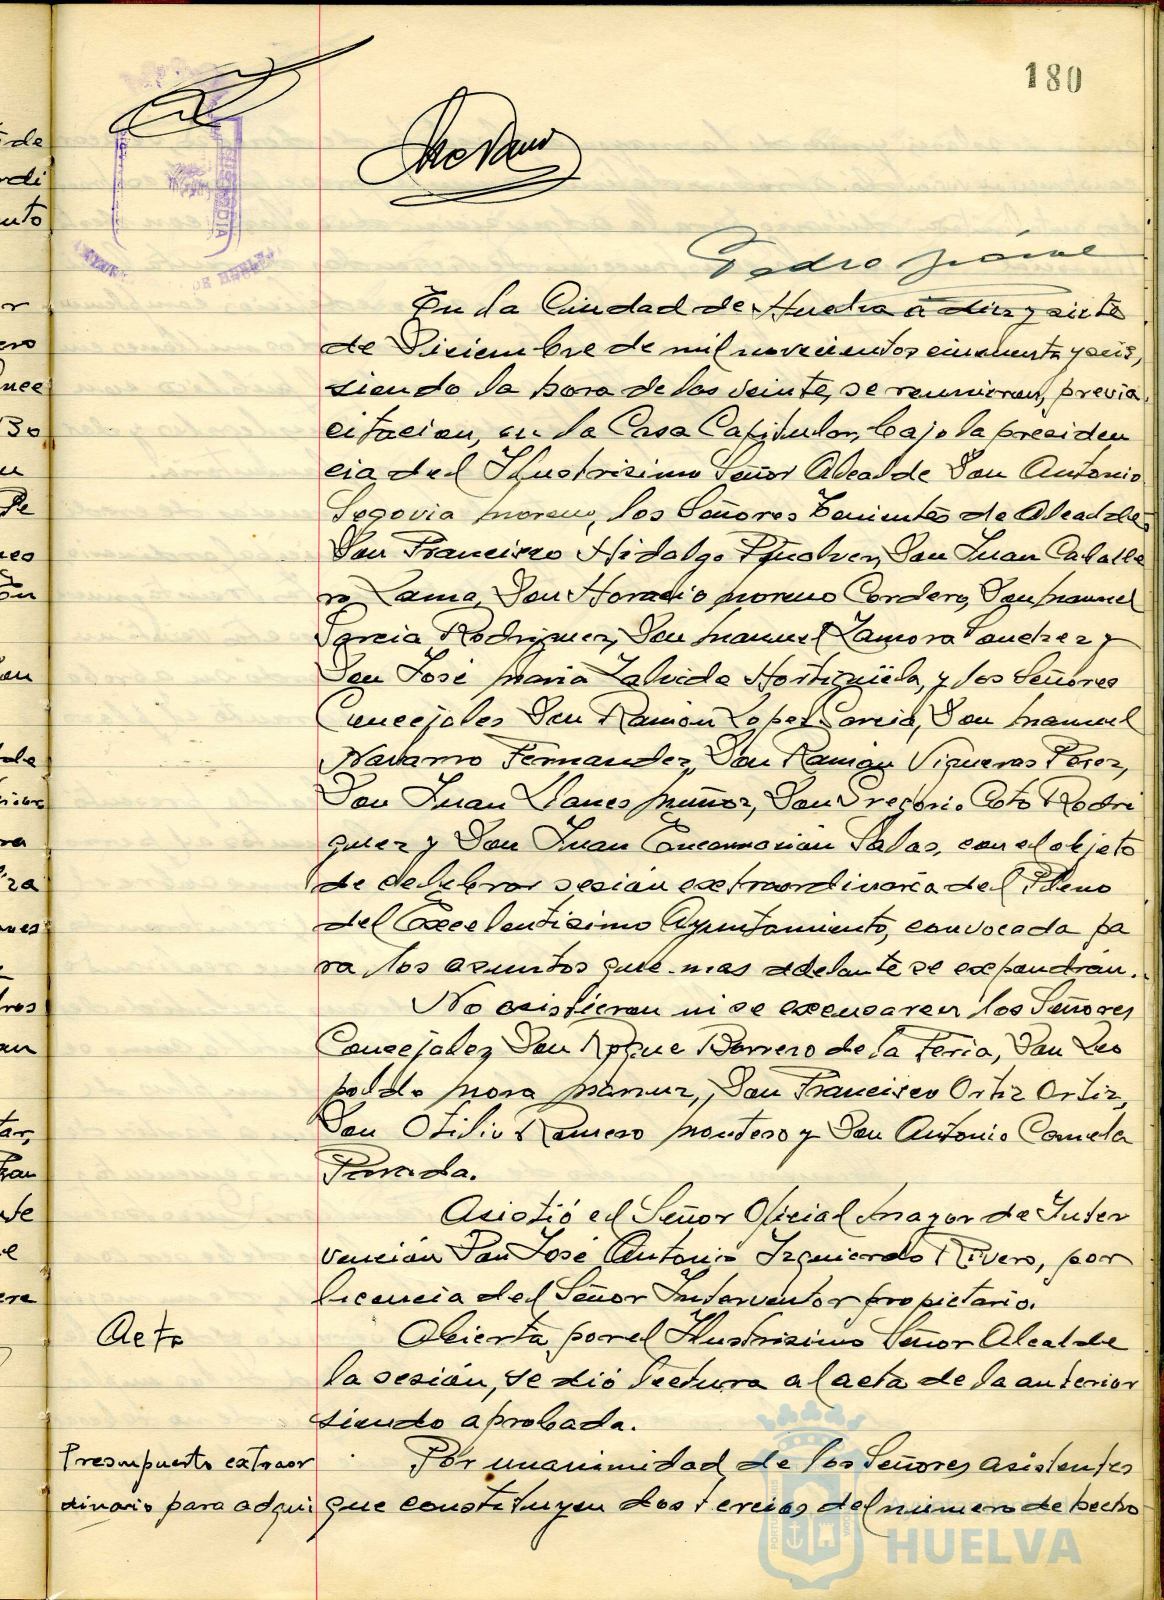 180
Pedro
En la Ciudad de Huelva a diez y siete
de Diciembre de mil novecientos cincuenta y seis,
siendo la hora de las veinte, se reunieron, previa
citacion, en la Casa Capitular, bajo la presiden
cia del Ilustrisimo Señor Alcalde Don Antonio
Segovia Moreno, los Señores Tenientes de Alcalde,
Don Francisco Hidalgo Peñalver, Don Juan Caballe
ro Lama, Don Horacio Moreno Cordero, Don Manuel
Garcia Rodriguez, Don Manuel Zamora Sanchez y
Don José Maria Zalvide Hortigüela, y los Señores
Concejales Don Ramón Lopez Garcia, Don Manuel
Navarro Fernandez, Don Ramón Vigueras Perez,
Don Juan Llanes Muñoz, Don Gregorio Coto Rodri
guez y Don Juan Encarnación Salas, con el objeto
de celebrar sesión extraordinaria del Pleno
del Excelentisimo Ayuntamiento, convocada pa
ra los asuntos que mas adelante se expondrán.
No asistieron ni se excusaron los Señores
Concejales Don Roque Barrero de la Feria, Don Leo
poldo Mora, Don Francisco Ortiz Ortiz,
Don Otilio Romero Montero y Don Antonio Camela
Parada.
Asistió el Señor Oficial Mayor de Inter
vención Don José Antonio Izquierdo Rivero, por
licencia del Señor Interventor propietario.
Acta
Abierta por el Ilustrisimo Señor Alcalde
la sesión, se dió lectura al acta de la anterior
siendo aprobada.
Presupuesto extraor
dinario para adqui
Por unanimidad de los Señores asistentes
que constituyen dos tercios del número de hecho
HUELVA